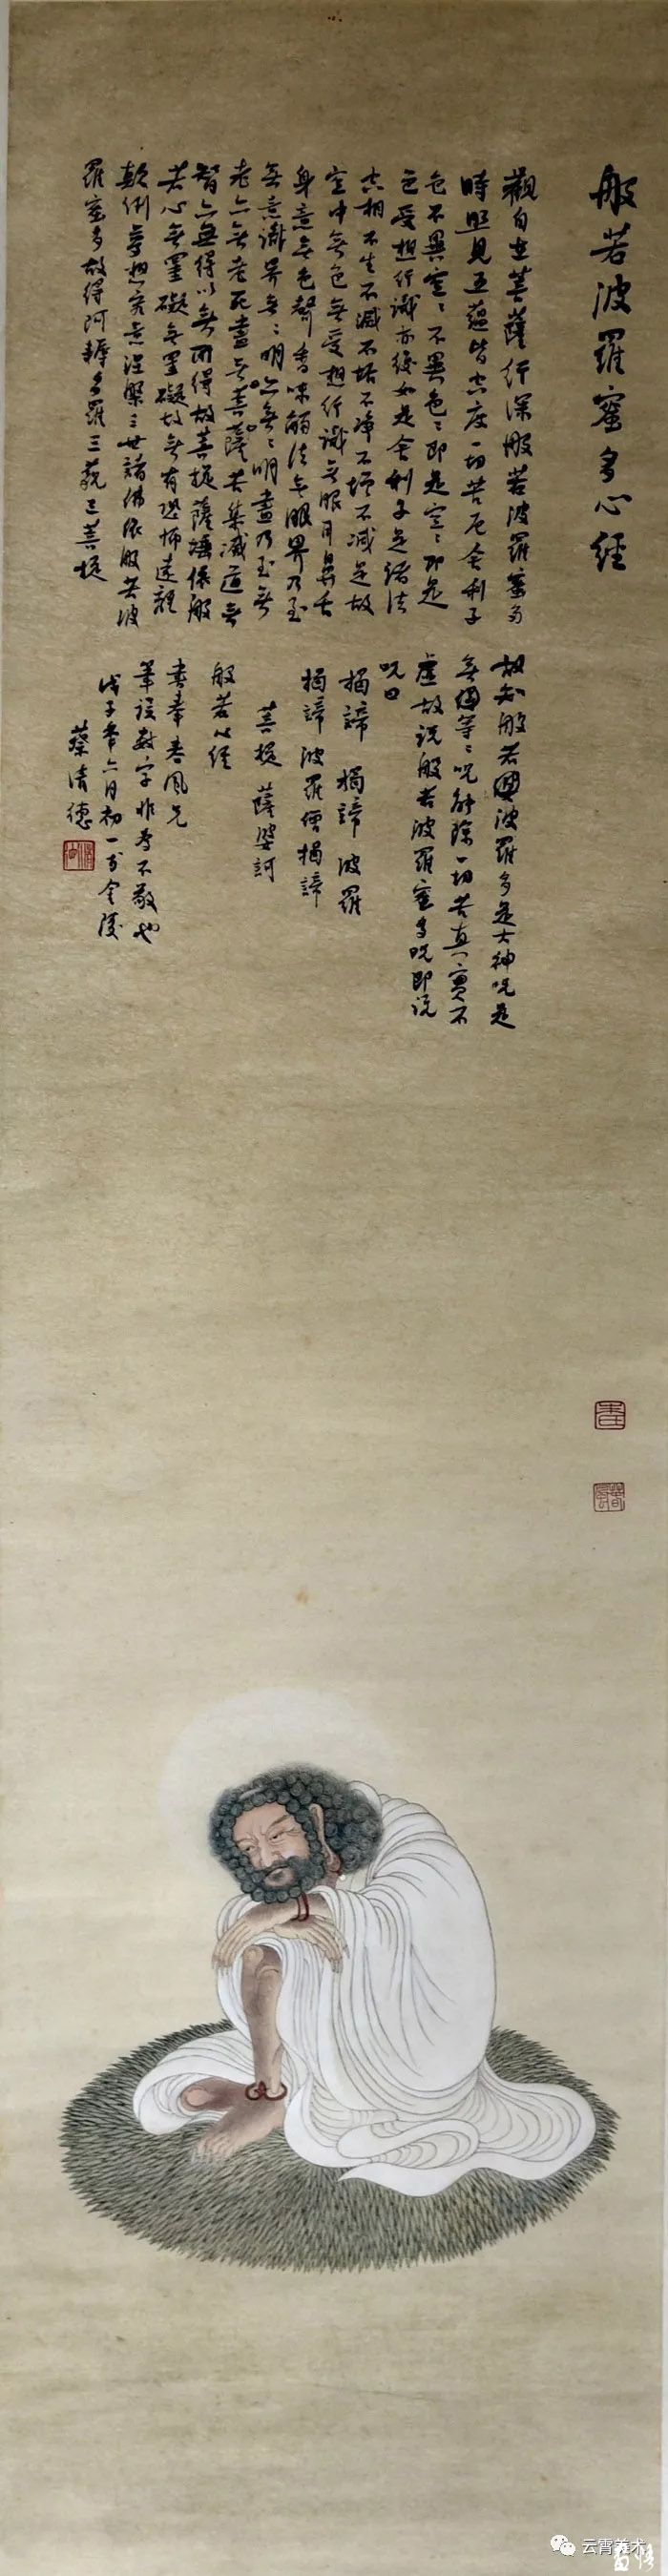 般若波羅蜜多心經
觀自在菩薩行深般若波羅蜜多
時照見五蘊皆空度一切苦厄舍利子
色不異空〻不異色〻即是空〻即是
色受想行識亦復如是舍利子是諸法
空相不生不滅不垢不淨不增不減是故
空中無色無受想行識無眼耳鼻舌
身意無色聲香味觸法無眼界乃至
無意識界無〻明亦無〻明盡乃至無
老亦無老死盡無苦集滅道無
智亦無得以無所得故菩提薩埵依般
若心無罣礙無罣礙故無有恐怖遠離
顛倒夢想究竟涅槃三世諸佛依般若波
羅蜜多故得阿耨多羅三藐三菩提
故知般若波羅多是大神咒是
無等〻咒能除一切苦真實不
虛故說般若波羅蜜多咒即说
咒曰
揭諦 揭諦 波羅
揭諦 波羅僧揭諦
菩提 薩婆訶
般若心經
書奉春風兄
筆误數字非为不敬也
戊子年六月初一於金陵
蔡清德
云霄美术